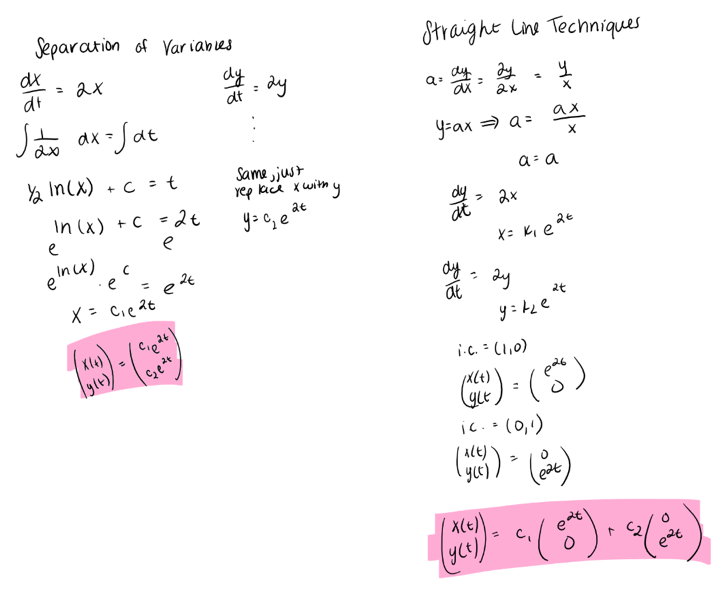 Separation of Variables
dx/dt = 2x
dy/dt = 2y
∫ 1/2x dx = ∫ dt
⋮
½ ln(x) + c = t
Same, just
replace x with y
ln(x) + c = 2t
e e
y = c₂e^2t
e^ln(x) · e^c = e^2t
x = c₁e^2t
(x(t) y(t)) = (c₁e^2t c₂e^2t)
Straight Line Techniques
a = dy/dx = 2y/2x = y/x
y = ax ⇒ a = ax/x
a = a
dy/dt = 2x
x = k₁e^2t
dy/dt = 2y
y = k₂e^2t
i.c. = (1,0)
(x(t) y(t) = (e^2t 0)
i.c. = (0,1)
(x(t) y(t)) = (0 e^2t)
(x(t) y(t)) = c₁(e^2t 0) + c₂(0 e^2t)